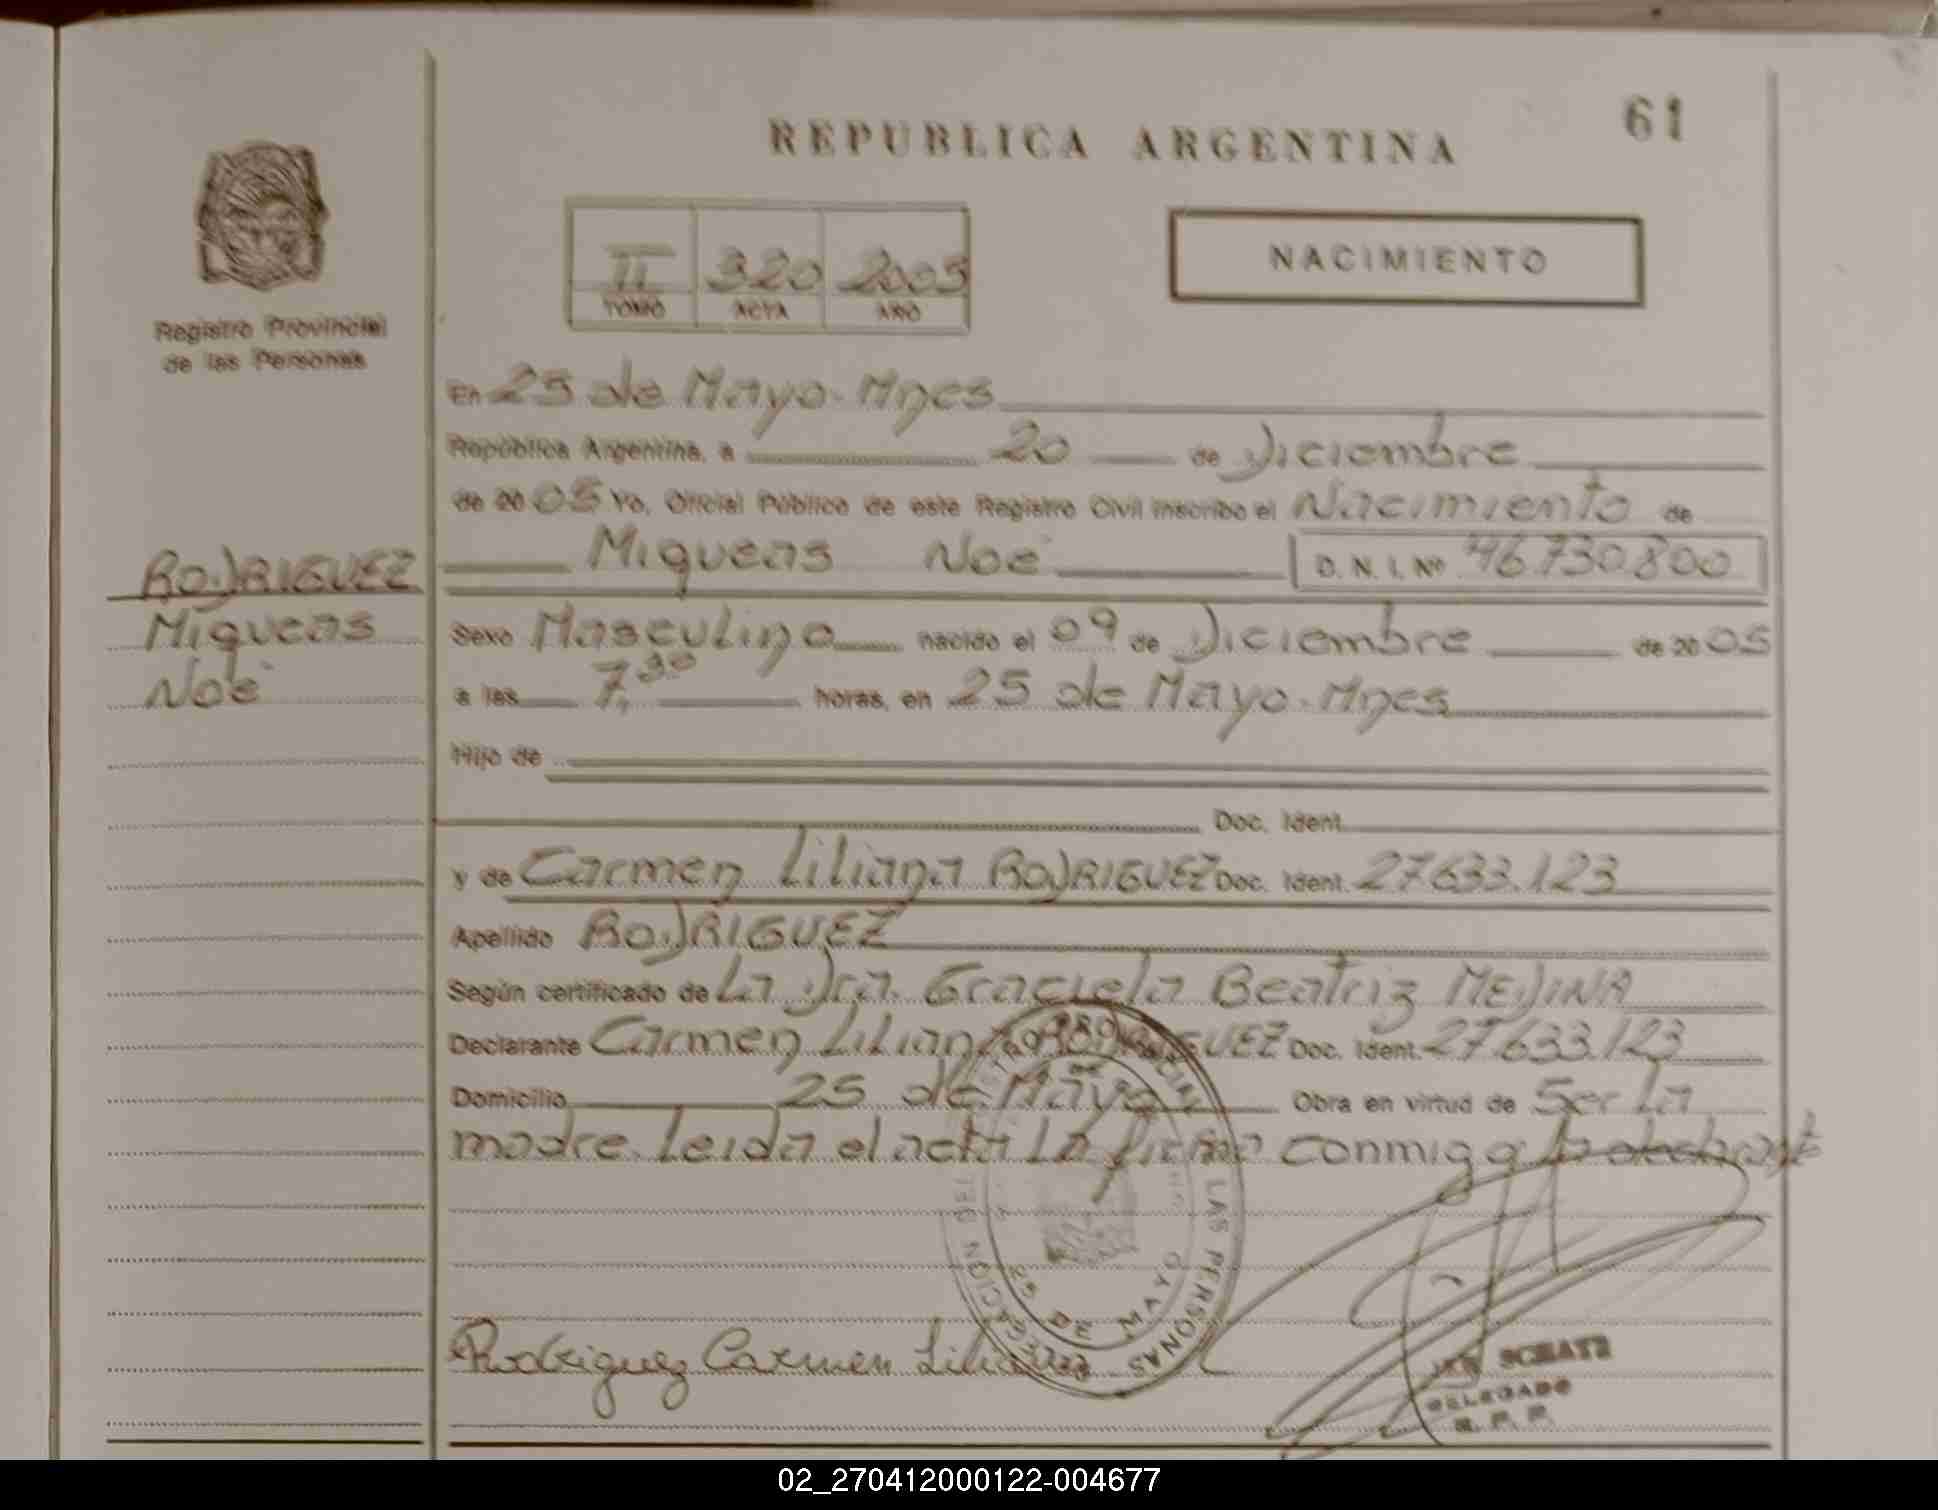 61
REPUBLICA ARGENTINA
II 320 2005
TOMO ACTA AÑO
NACIMIENTO
Registro Provincial
de las Personas
En 25 de Mayo - Mnes
República Argentina, a 20 de Diciembre
de 2005 Yo, Oficial Público de este Registro Civil inscribo el Nacimiento de
Miqueas Noé D.N.I. Nº 46.730.800
RODRIGUEZ
Miqueas
Noé
Sexo Masculino nacido el 09 de Diciembre de 2005
a las 7,30 horas, en 25 de Mayo - Mnes
Hijo de
Doc. Ident.
y de Carmen Liliana RODRIGUEZ Doc. Ident. 27.633.123
Apellido RODRIGUEZ
Según certificado de La Dra. Graciela Beatriz MEDINA
Declarante Carmen Liliana RODRIGUEZ Doc. Ident. 27.633.123
Domicilio 25 de Mayo Obra en virtud de Ser la
madre. Leida el acta la firma conmigo la declarante
DELEGACION DEL REGISTRO PROVINCIAL DE LAS PERSONAS
25 DE MAYO
Rodriguez Carmen Liliana
SCHATZ
DELEGADO
R. P. P.
02_270412000122-004677